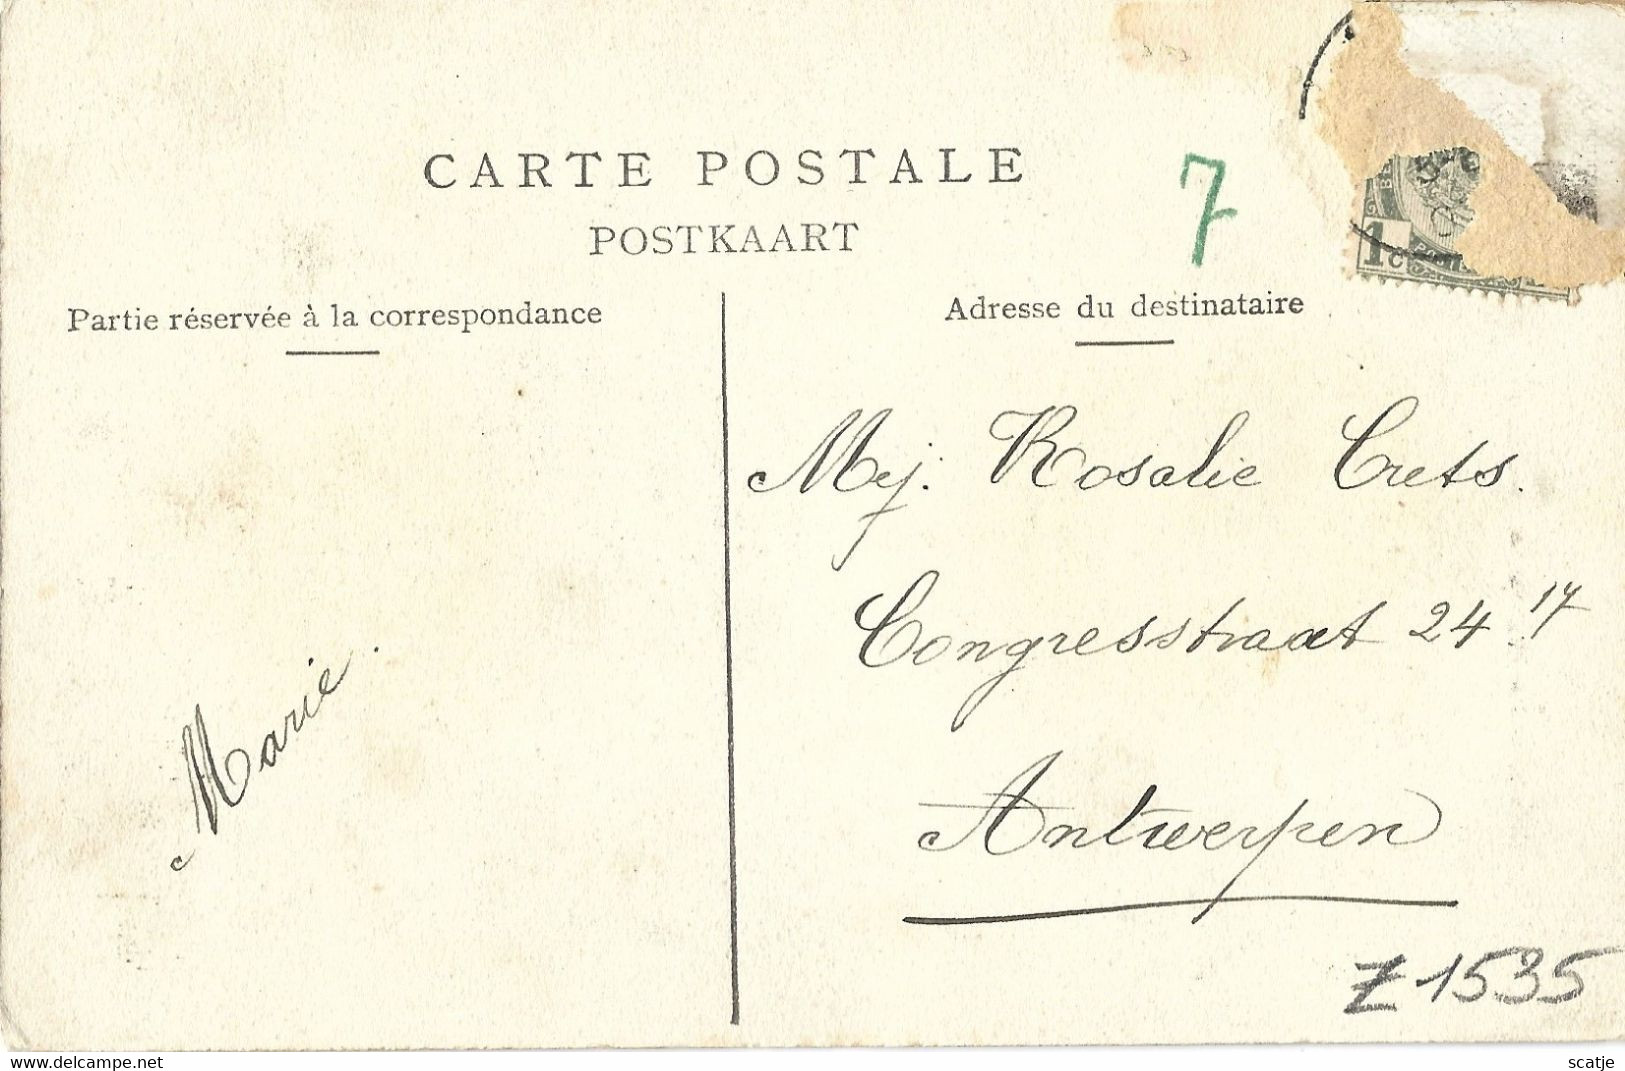 CARTE POSTALE
POSTKAART
7
Partie réservée à la correspondance
Adresse du destinataire
1 C
Mej. Rosalie Crets.
Congresstraat 24 17
Antwerpen
Marie.
Z 1535
website:www.delcampe.net
scatje